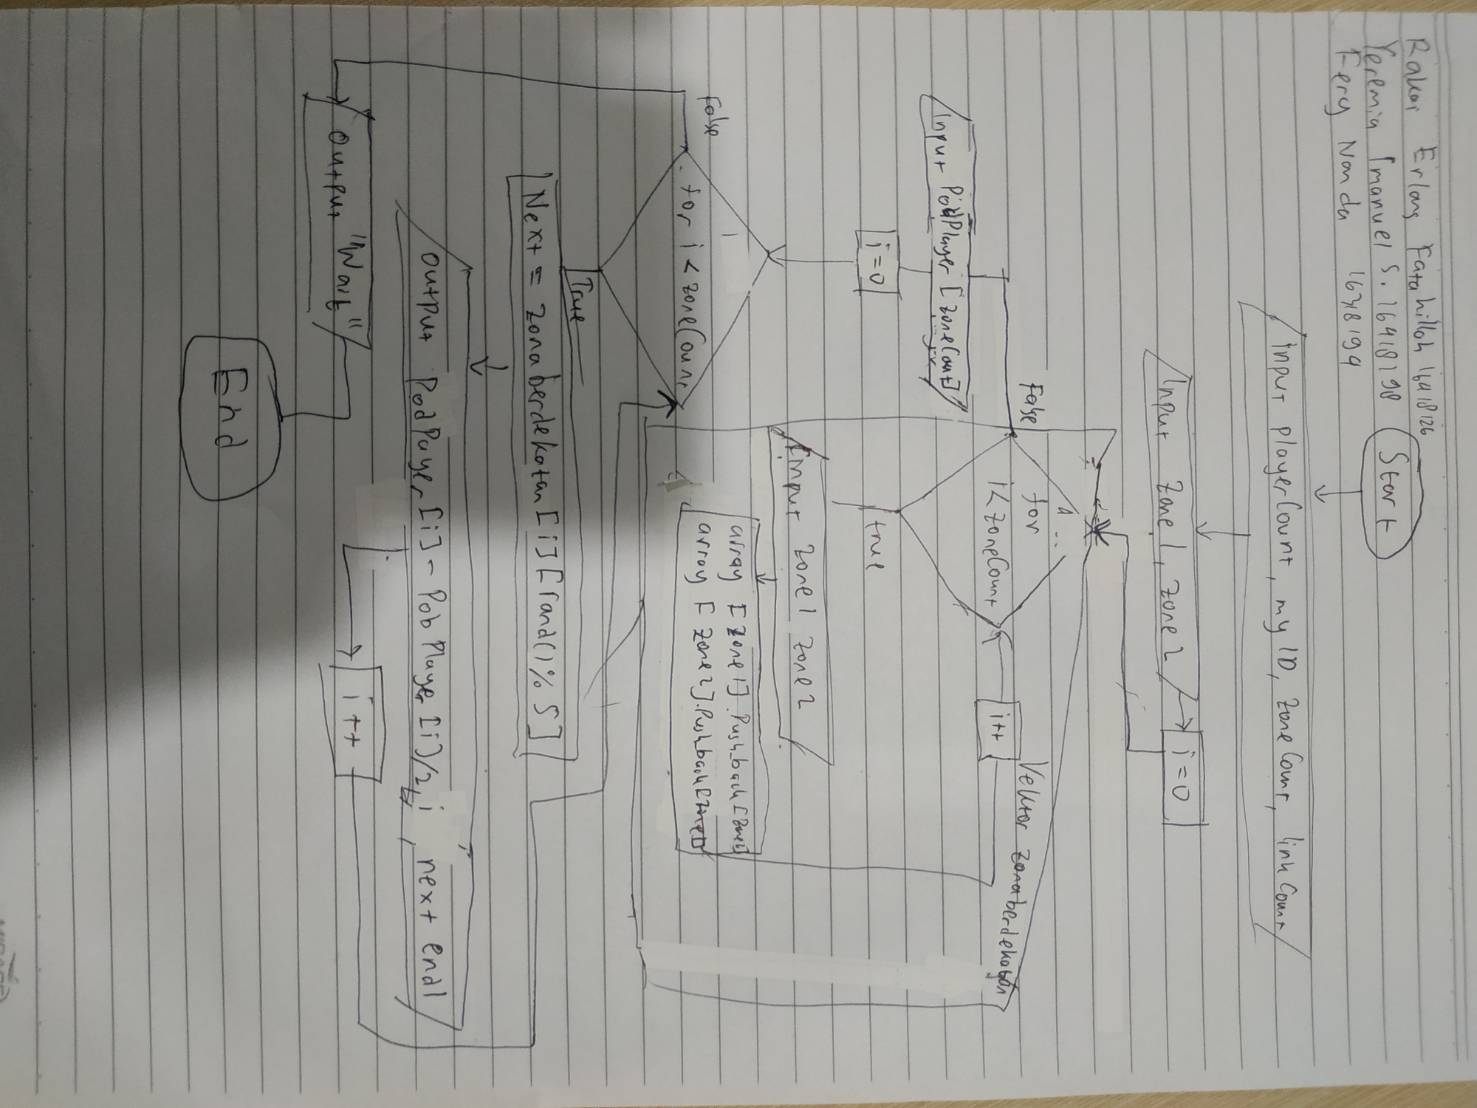 Rakai Erlang Fatahilloh 16418126
Yeremia Imanuel S. 16418198
Fery Nanda 16418194
Start
Input playerCount, my ID, zoneCount, linkCount
Input zone1, zone2
i=0
for
i<zoneCount
False
true
i++
Vektor zonaberdekatan
Input zone1 zone2
array [zone1].Pushback[zone2]
array [zone2].Pushback[zone1]
Input PodPlayer [zoneCount]
i=0
for i<zoneCount
False
True
Next = zonaberdekatan[i][rand()% 5]
output PodPlayer[i] - PobPlayer[i]/2, i, next endl
i++
output "Wait"
End